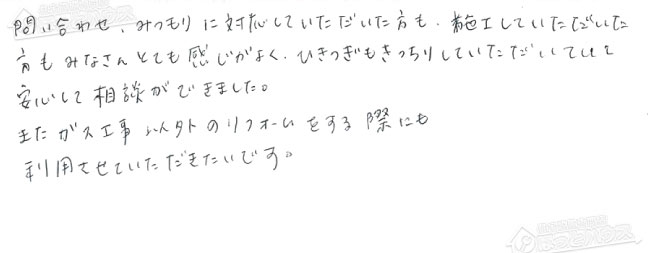 問い合わせ、みつもりに対応していただいた方も、施工していただいた
方もみなさんとても感じがよく、ひきつぎもきっちりしていただいていて
安心して相談ができました。
またガス工事以外のリフォームをする際にも
利用させていただきたいです。